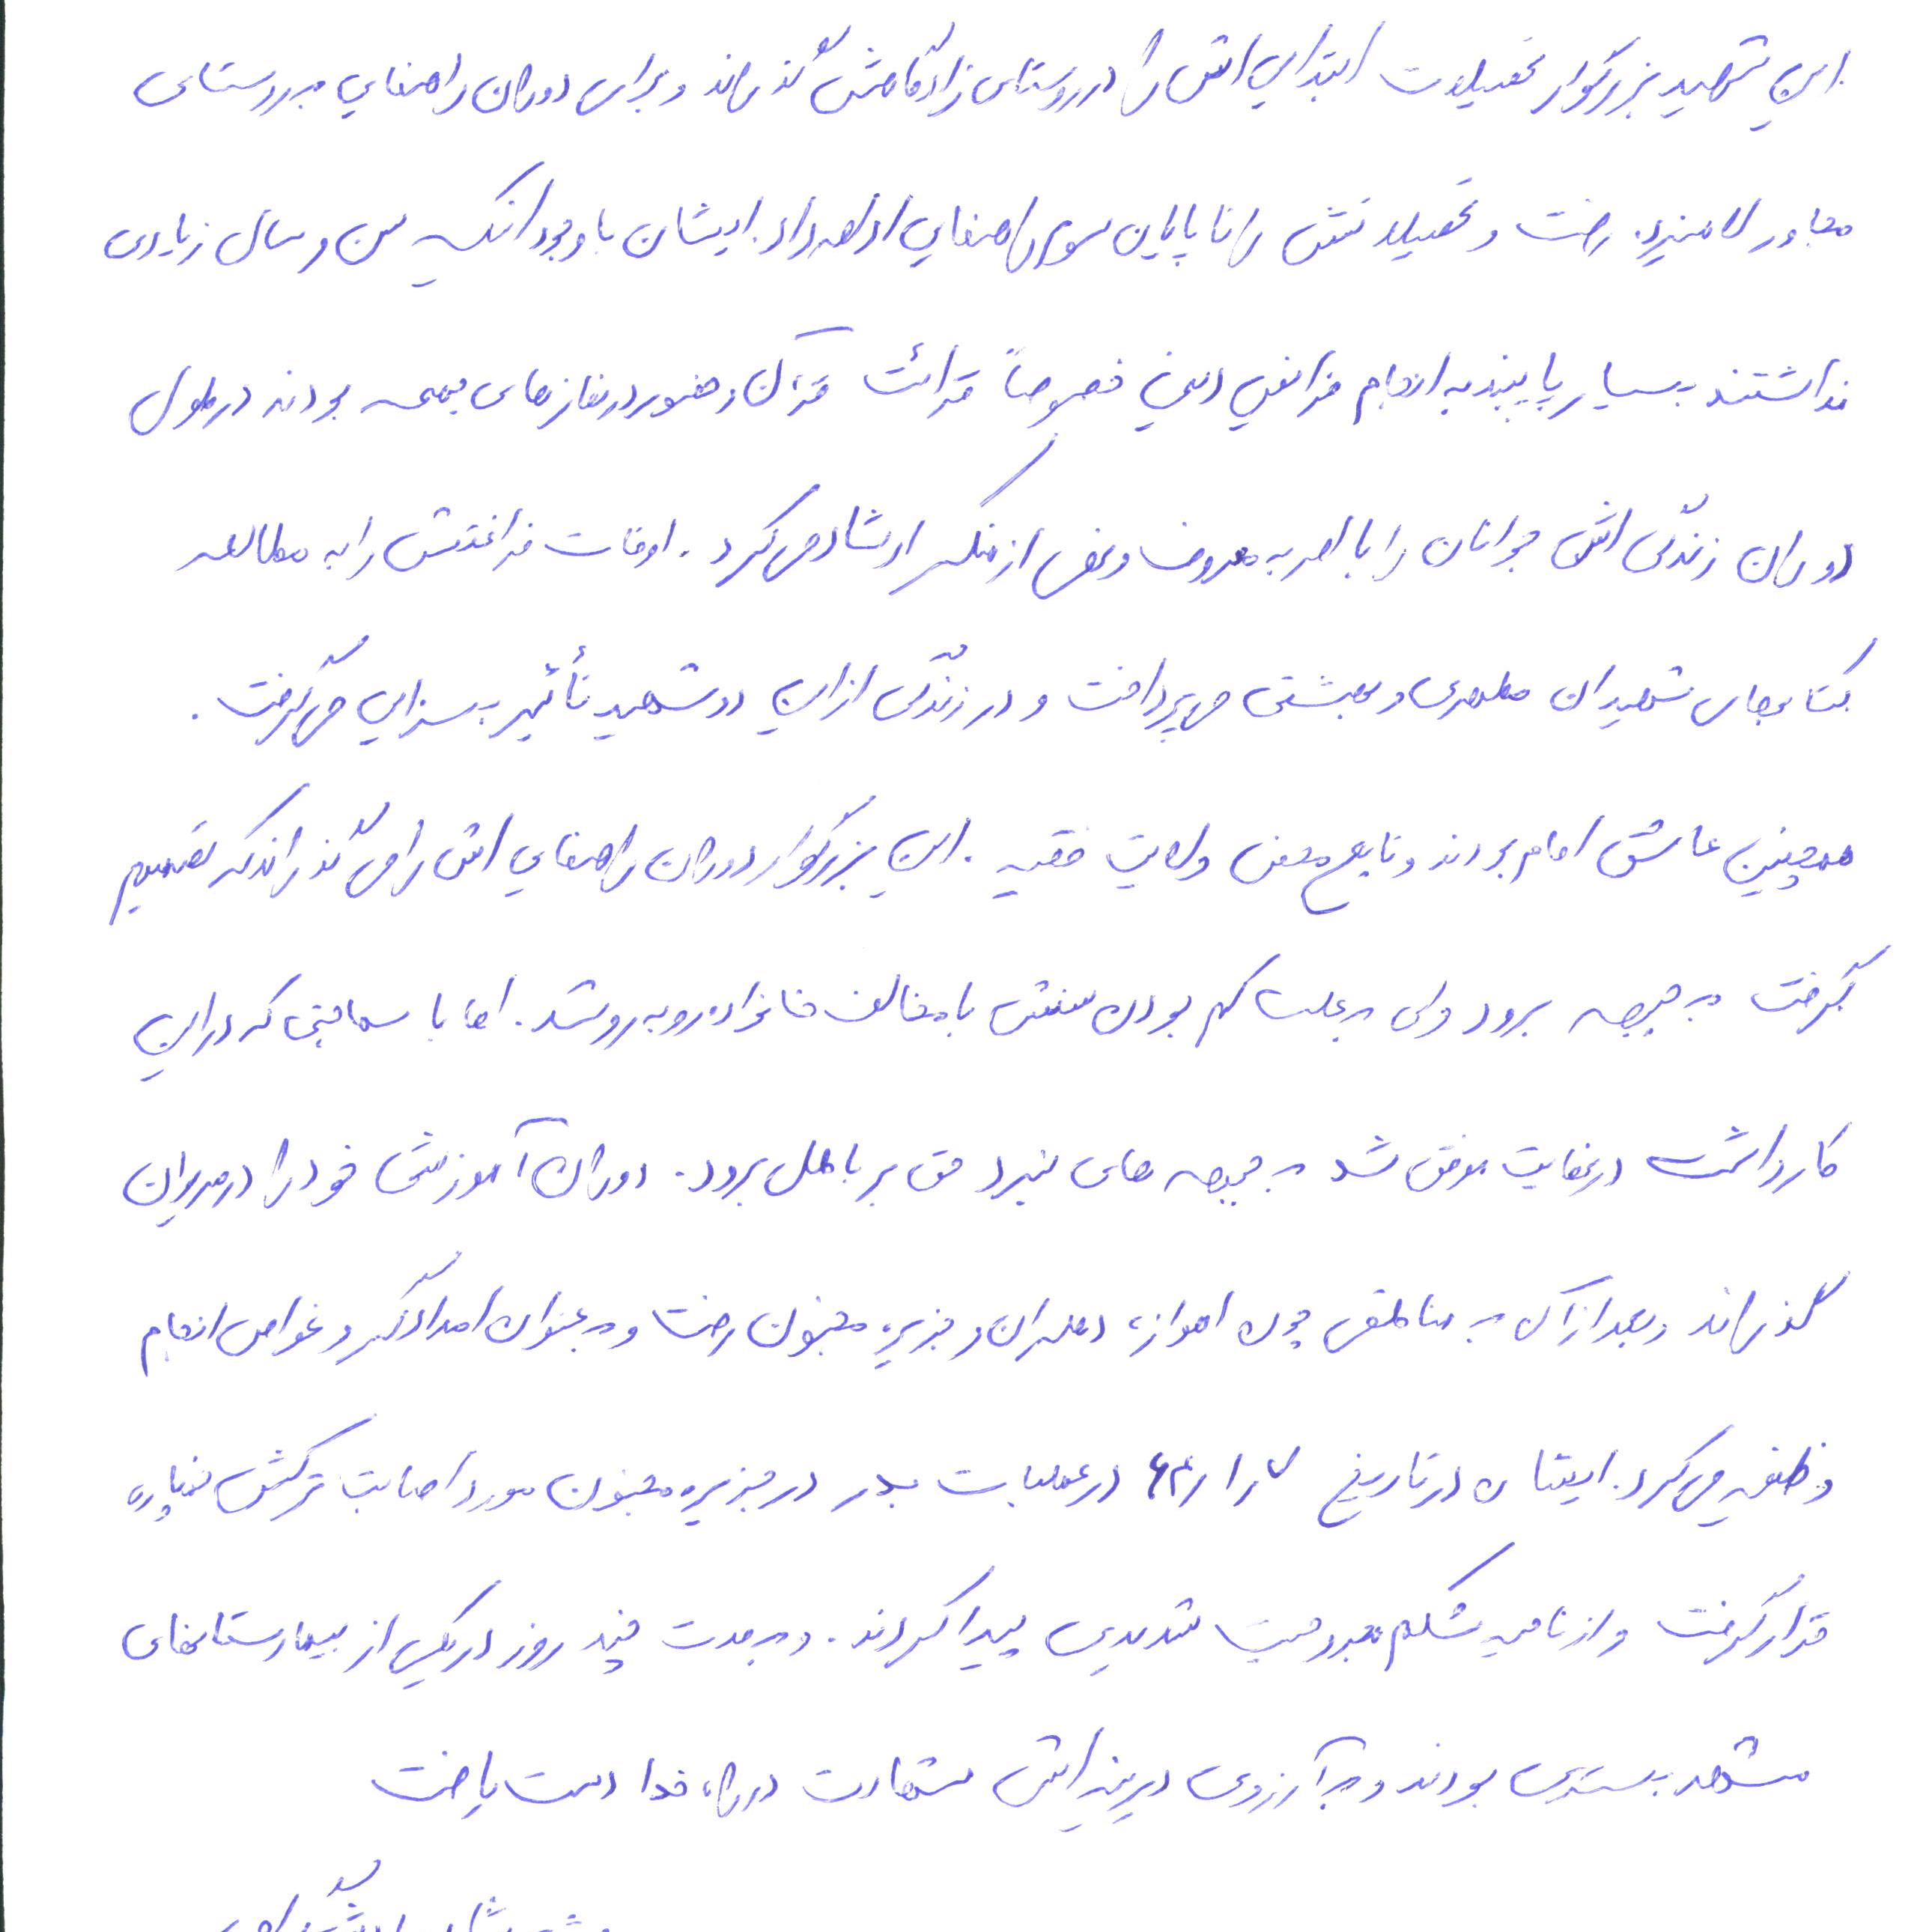 این شهید بزرگوار تحصیلات ابتدایی اش را در روستای زادگاهش گذراند و برای دوران راهنمایی به روستای
مجاور رفت و تحصیلاتش را تا پایان سوم راهنمایی ادامه داد. ایشان با وجود اینکه سن و سال زیادی
نداشتند بسیار پایبند به انجام فرائض دینی خصوصاً قرائت قرآن و حضور در نمازهای جمعه بودند در طول
دوران زندگی اش جوانان را با امر به معروف و نهی از منکر ارشاد می کرد. اوقات فراغتش را به مطالعه
کتابهای شهیدان مطهری و بهشتی می پرداخت و در زندگی از این دو شهید تأثیر بسزایی می گرفت.
همچنین عاشق امام بودند و تابع محض ولایت فقیه. این بزرگوار دوران راهنمایی اش را می گذراند که تصمیم
گرفت به جبهه برود ولی به علت کم بودن سنش با مخالف خانواده روبه رو شد. اما با سماجتی که در این
کار داشت در نهایت موفق شد به جبهه های نبرد حق بر باطل برود. دوران آموزشی خود را در
گذراند و بعد از آن به مناطقی چون اهواز، دهلران و جزیره مجنون رفت و به عنوان امدادگر و غواص انجام
وظیفه می کرد. ایشان در تاریخ ۷/۱/۶۴ در عملیات بدر در جزیره مجنون مورد اصابت ترکش خمپاره
قرار گرفت و از ناحیه شکم مجروحیت شدیدی پیدا کردند. و به مدت چند روز در یکی از بیمارستانهای
مشهد بستری بودند و به آرزوی دیرینه اش شهادت در راه خدا دست یافت